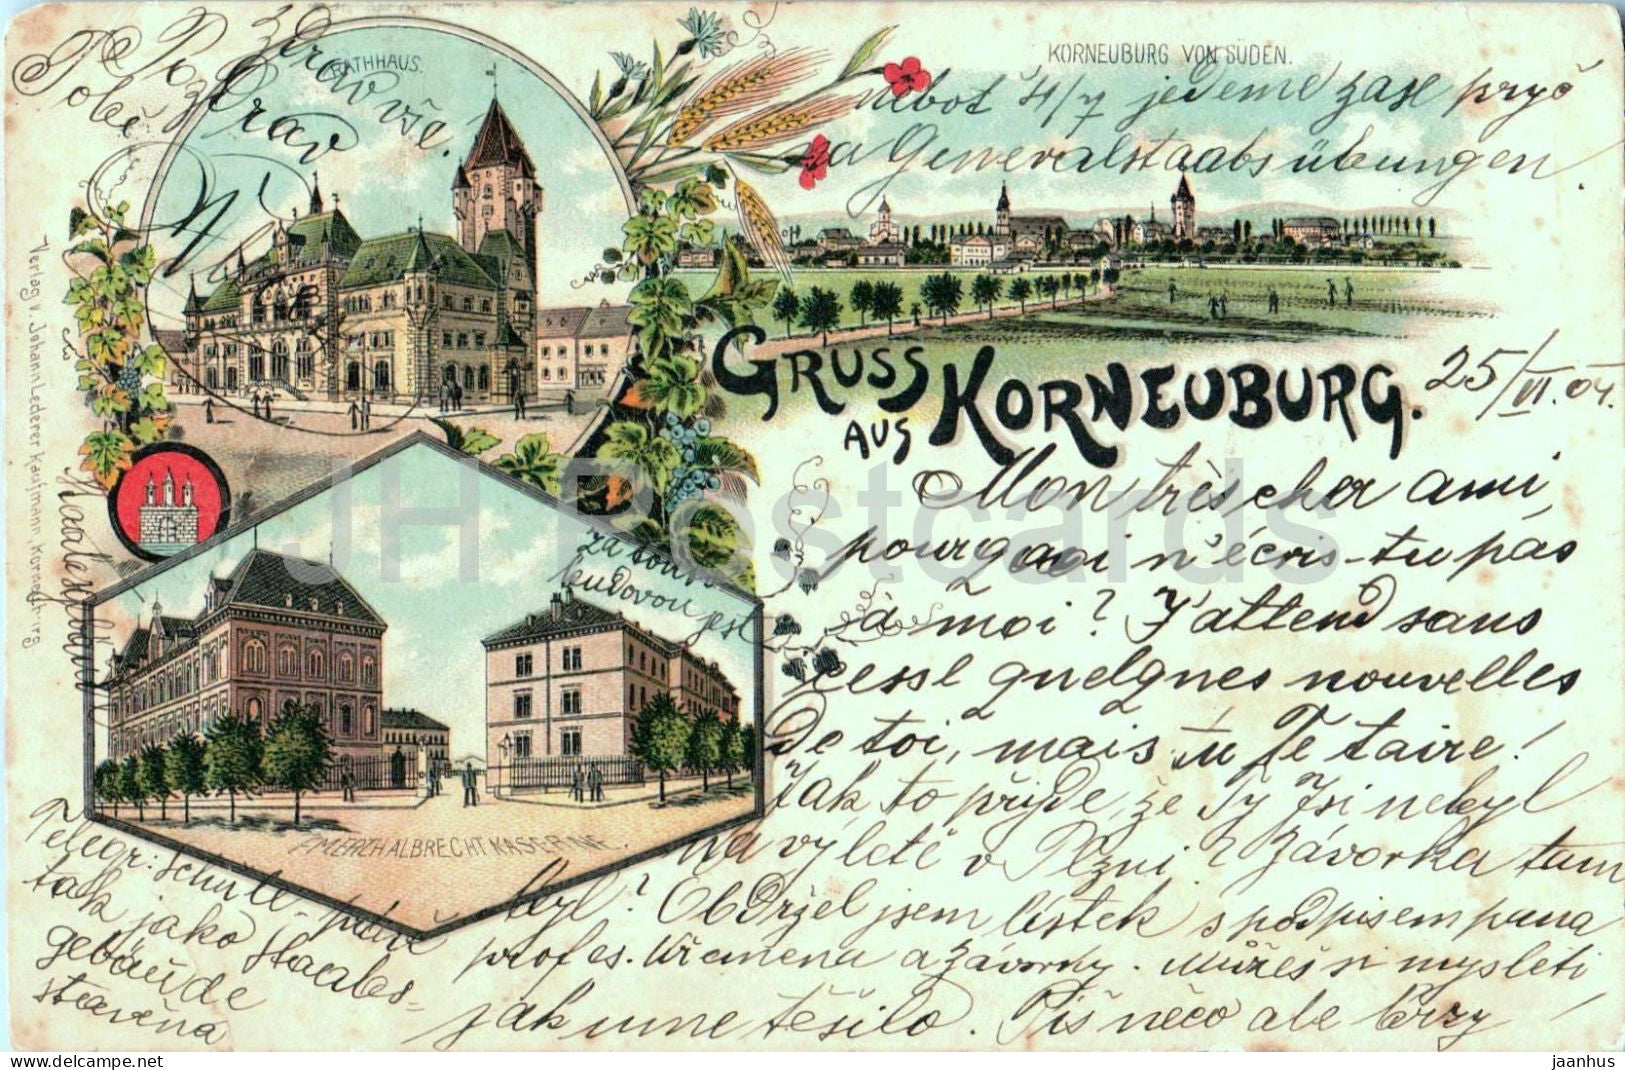 RATHHAUS.
KORNEUBURG VON SÜDEN.
GRUSS
AUS KORNEUBURG.
25/VI.04.
Mon très cher ami,
pourquoi n'écris-tu pas
à moi? J'attend sans
cesse quelques nouvelles
de toi, mais tu te taire!
Jak to přijde, že Ty Jsi nebyl
na výletě v Plzni? Závorka tam
byl? Obdržel jsem lístek s podpisem pana
profes. Křemena a Závorky. Můžeš si mysleti
jak mne těšilo. Piš něco ale brzy
nebot 4/7 jedeme zase pryč
na Generalstaabsübungen.
Pozdrav
Tobě
vše.
za touto
budovou jest
Telegr: Schule, právě
tak jako Staabs-
gebäude
stavěna
EMERZH ALBRECHT KASERNE.
Verlag v. Johann Lederer Kaufmann Korneuburg
JH Postcards
www.delcampe.net
jaanhus